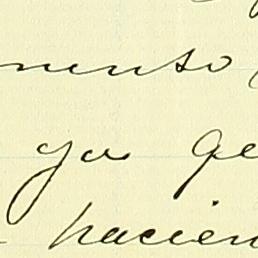 mento
ya qe
hacien